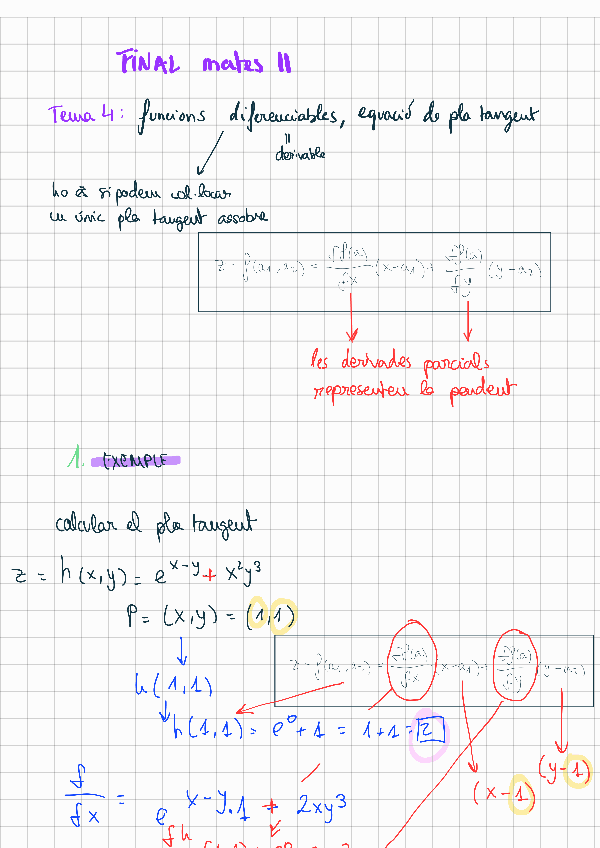 FINAL mates II
Tema 4: funcions diferenciables, equació de pla tangent
=
derivable
ho és si podem col·locar
un únic pla tangent a sobre
z - f(a₁,a₂) = δf(a)/δx (x-a₁) + δf(a)/δy (y-a₂)
les derivades parcials
representen la pendent
1. EXEMPLE
calcular el pla tangent
z = h(x,y) = e^x-y + x²y³
P = (x,y) = (1,1)
z - f(a₁,a₂) = δf(a)/δx (x-a₁) + δf(a)/δy (y-a₂)
h(1,1)
h(1,1) = e⁰ + 1 = 1+1 = 2
(x-1)
(y-1)
f/fx = e^x-y·1 + 2xy³
fh